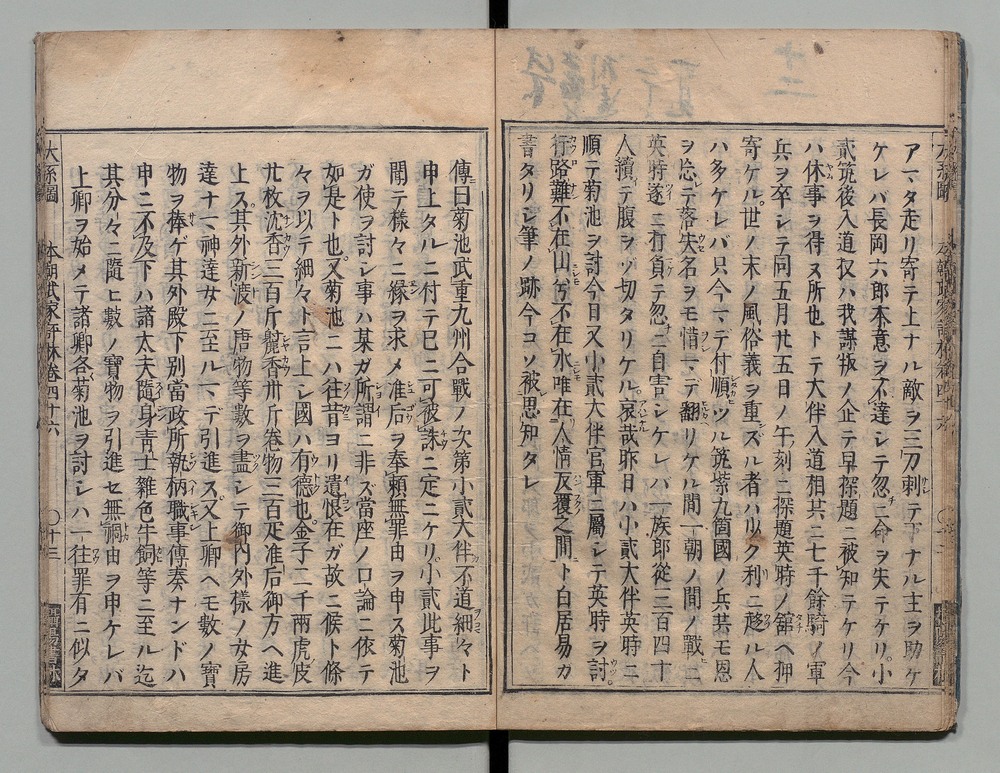 アマタ走リ寄テ上ナル敵ヲ三刀刺テ下ナル主ヲ助ケ
ケレバ長岡六郎本意ヲ不達シテ忽ニ命ヲ失テケリ小
貳筑後入道奴ハ我謀叛ノ企テ早探題ニ被知テケリ今
ハ休事ヲ得ス所也トテ大伴入道相共ニ七千餘騎ノ軍
兵ヲ卒シテ同五月廿五日ノ午刻ニ探題英時ノ舘ヘ押
寄ケル世ノ末ノ風俗義ヲ重ズル者ハ少ク利ニ趍ル人
ハ多ケレバ只今マデ付順ヒツル筑紫九箇國ノ兵共モ恩
ヲ忘テ落失名ヲモ惜マデ翻リケル間一朝ノ間ノ戰ニ
英時遂ニ打負テ忽ニ自害シケレバ一族郎從三百四十
人續テ腹ヲゾ切タリケル哀哉昨日ハ小貳大伴英時ニ
順テ菊池ヲ討今日又小貳大伴官軍ニ屬シテ英時ヲ討
行路難不在山兮不在水唯在人情反覆之間ト白居易カ
書タリシ筆ノ跡今コソ被思知タレ
傳曰菊池武重九州合戰ノ次第小貳大伴不道細々ト
申上タルニ付テ已ニ可被誅ニ定ニケリ小貳此事ヲ
聞テ樣々ニ縁ヲ求メ准后ヲ奉頼無罪由ヲ申ス菊池
ガ使ヲ討シ事ハ某ガ所謂ニ非ズ當座ノ口論ニ依テ
如是ト也又菊池ニハ往昔ヨリ遺恨在ガ故ニ候ト條
々ヲ以テ細々ト言上シ國ハ有德也金子二千兩虎皮
廿枚沈香三百斤麝香卅斤卷物三百疋准后御方ヘ進
上ス其外新渡ノ唐物等數ヲ盡シテ御内外樣ノ女房
達十一、神達女ニ至ルマデ引進ス又上卿ヘモ數ノ寶
物ヲ捧ゲ其外殿下別當政所執柄職事傳奏ナンドハ
申ニ不及下ハ諸太夫隨身青士雜色牛飼等ニ至ル迄
其分々ニ隨ヒ數ノ寶物ヲ引進セ無禍由ヲ申ケレバ
上卿ヲ始メテ諸卿各菊池ヲ討シハ一往罪有ニ似タ
大系圖 本朝武家評林卷四十六 〇十三